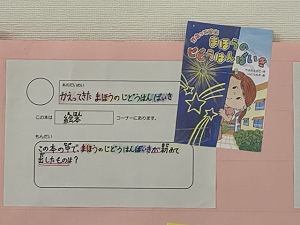 本のだいめい
かえってきた まほうのじどうはんばいき
この本は
えほん
絵本
コーナーにあります。
もんだい
この本の中で、まほうのじどうはんばいきが初めて
出したものは？
まほうの
じどうはんばいき